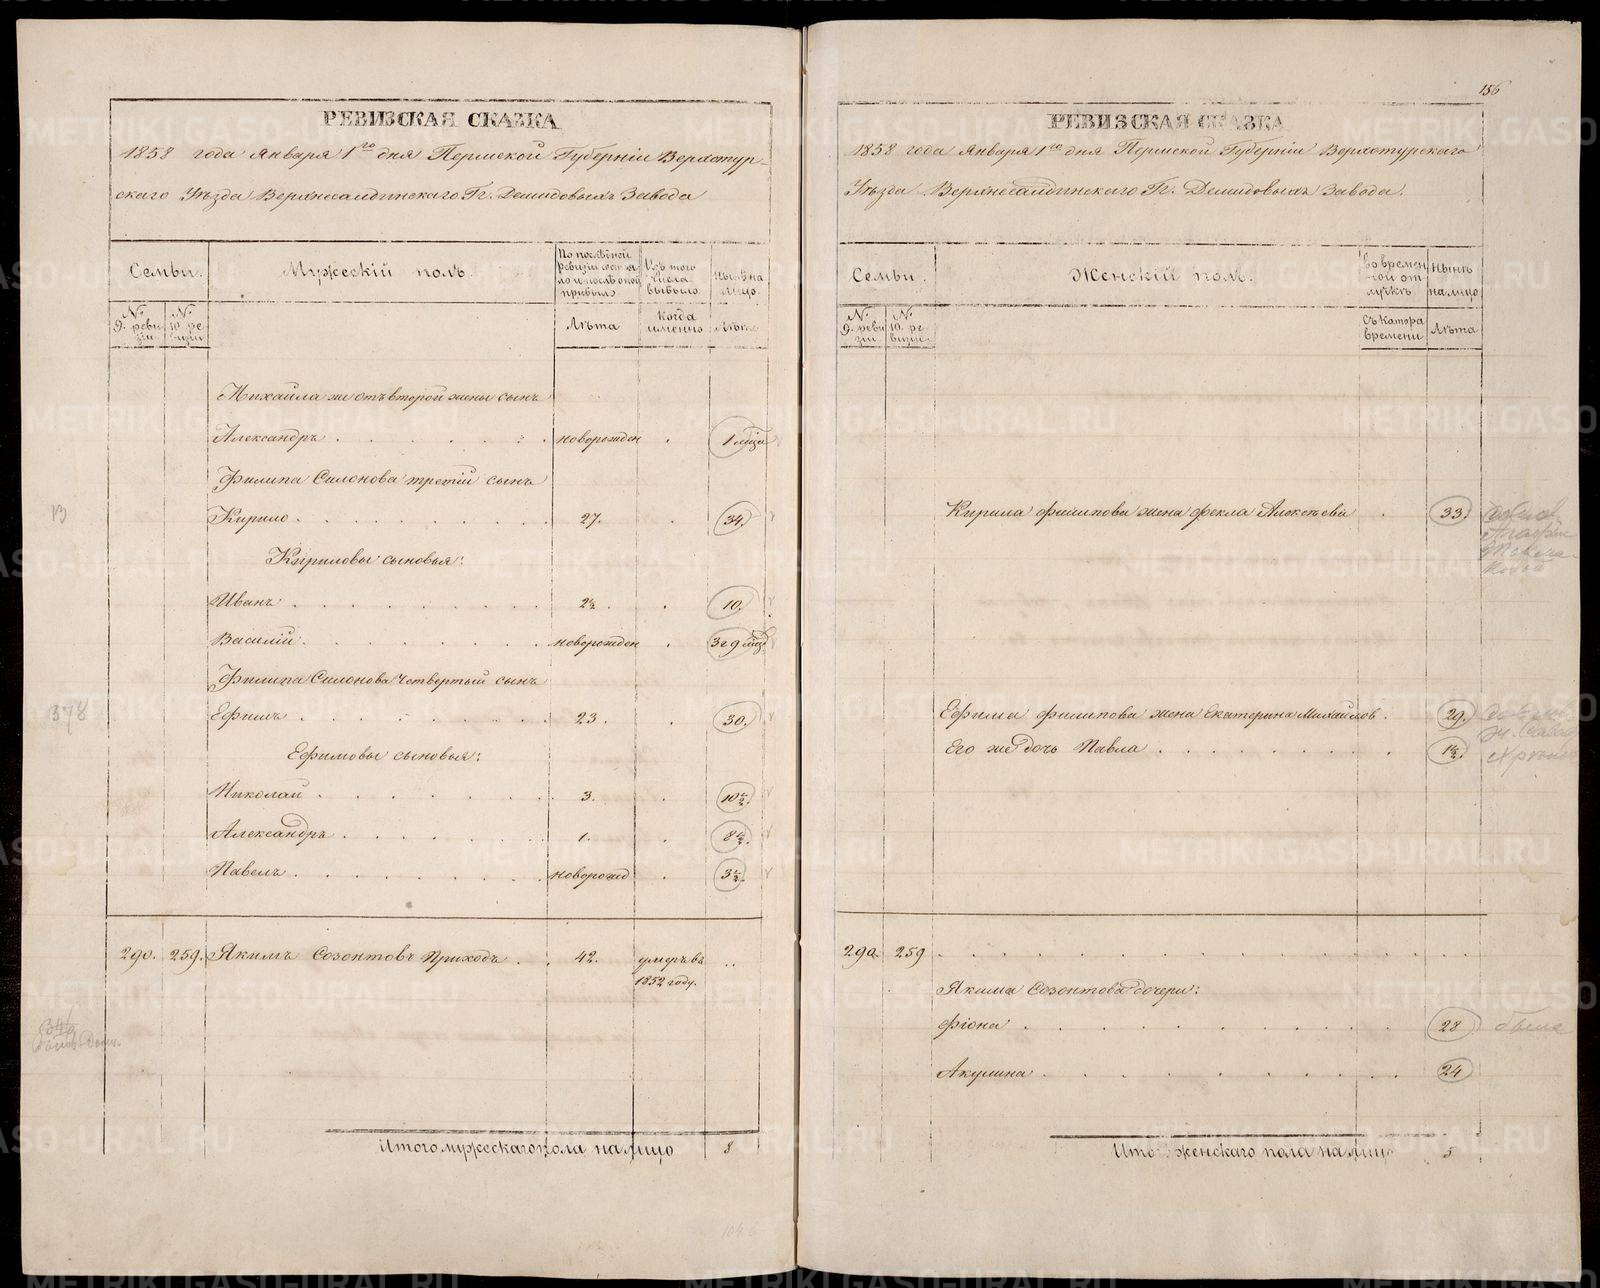 РЕВИЗСКАЯ СКАЗКА
1858 года Января 1го дня Пермской Губерніи Верхотур-
скаго Уѣзда Верхнесалдинскаго Гг. Демидовыхъ Завода
Семьи.
Мужескій полъ.
По послѣдней ревизіи состояло и послѣ оной прибыло
Изъ того числа выбыло.
Нынѣ на лицо.
№ 9. ревизіи
№ 10. ревизіи
Лѣта
когда именно
Лѣта
Михайла же отъ второй жены сынъ
Александръ . новорожден . 1 мѣся
Филипа Силонова третій сынъ
13
Кирило . 27. . 34.
Кириловы сыновья:
Иванъ . 2½ . . 10.
Василій . новорожден . 3 г 9 мѣс
Филипа Силонова четвертый сынъ
378
Ефимъ . 23. . 30.
Ефимовы сыновья:
Николай . 3. . 10½.
Александръ . 1. . 8½.
Павелъ . новорожд . 3½.
290. 259. Якимъ Созонтовъ Приходъ . 42. умеръ въ ..
1852 году.
Итого мужескаго пола на лицо 8
156
РЕВИЗСКАЯ СКАЗКА
1858 года Января 1го дня Пермской Губерніи Верхотурскаго
Уѣзда Верхнесалдинскаго Гг. Демидовыхъ Завода.
Семьи.
Женскій полъ.
Во временной отлучкѣ
Нынѣ на лицо
№ 9. ревизіи
№ 10. ревизіи
Съ котора времени
Лѣта
Кирила Филипова жена Фекла Алексѣева . 33.
Ефима Филипова жена Екатерина Михайлов . 29.
Его же дочь Павла . 1½.
290. 259 .
Якима Созонтова дочери:
Фіона . 28
Акулина . 24
Итого женскаго пола на лицо 5
METRIKI.GASO-URAL.RU